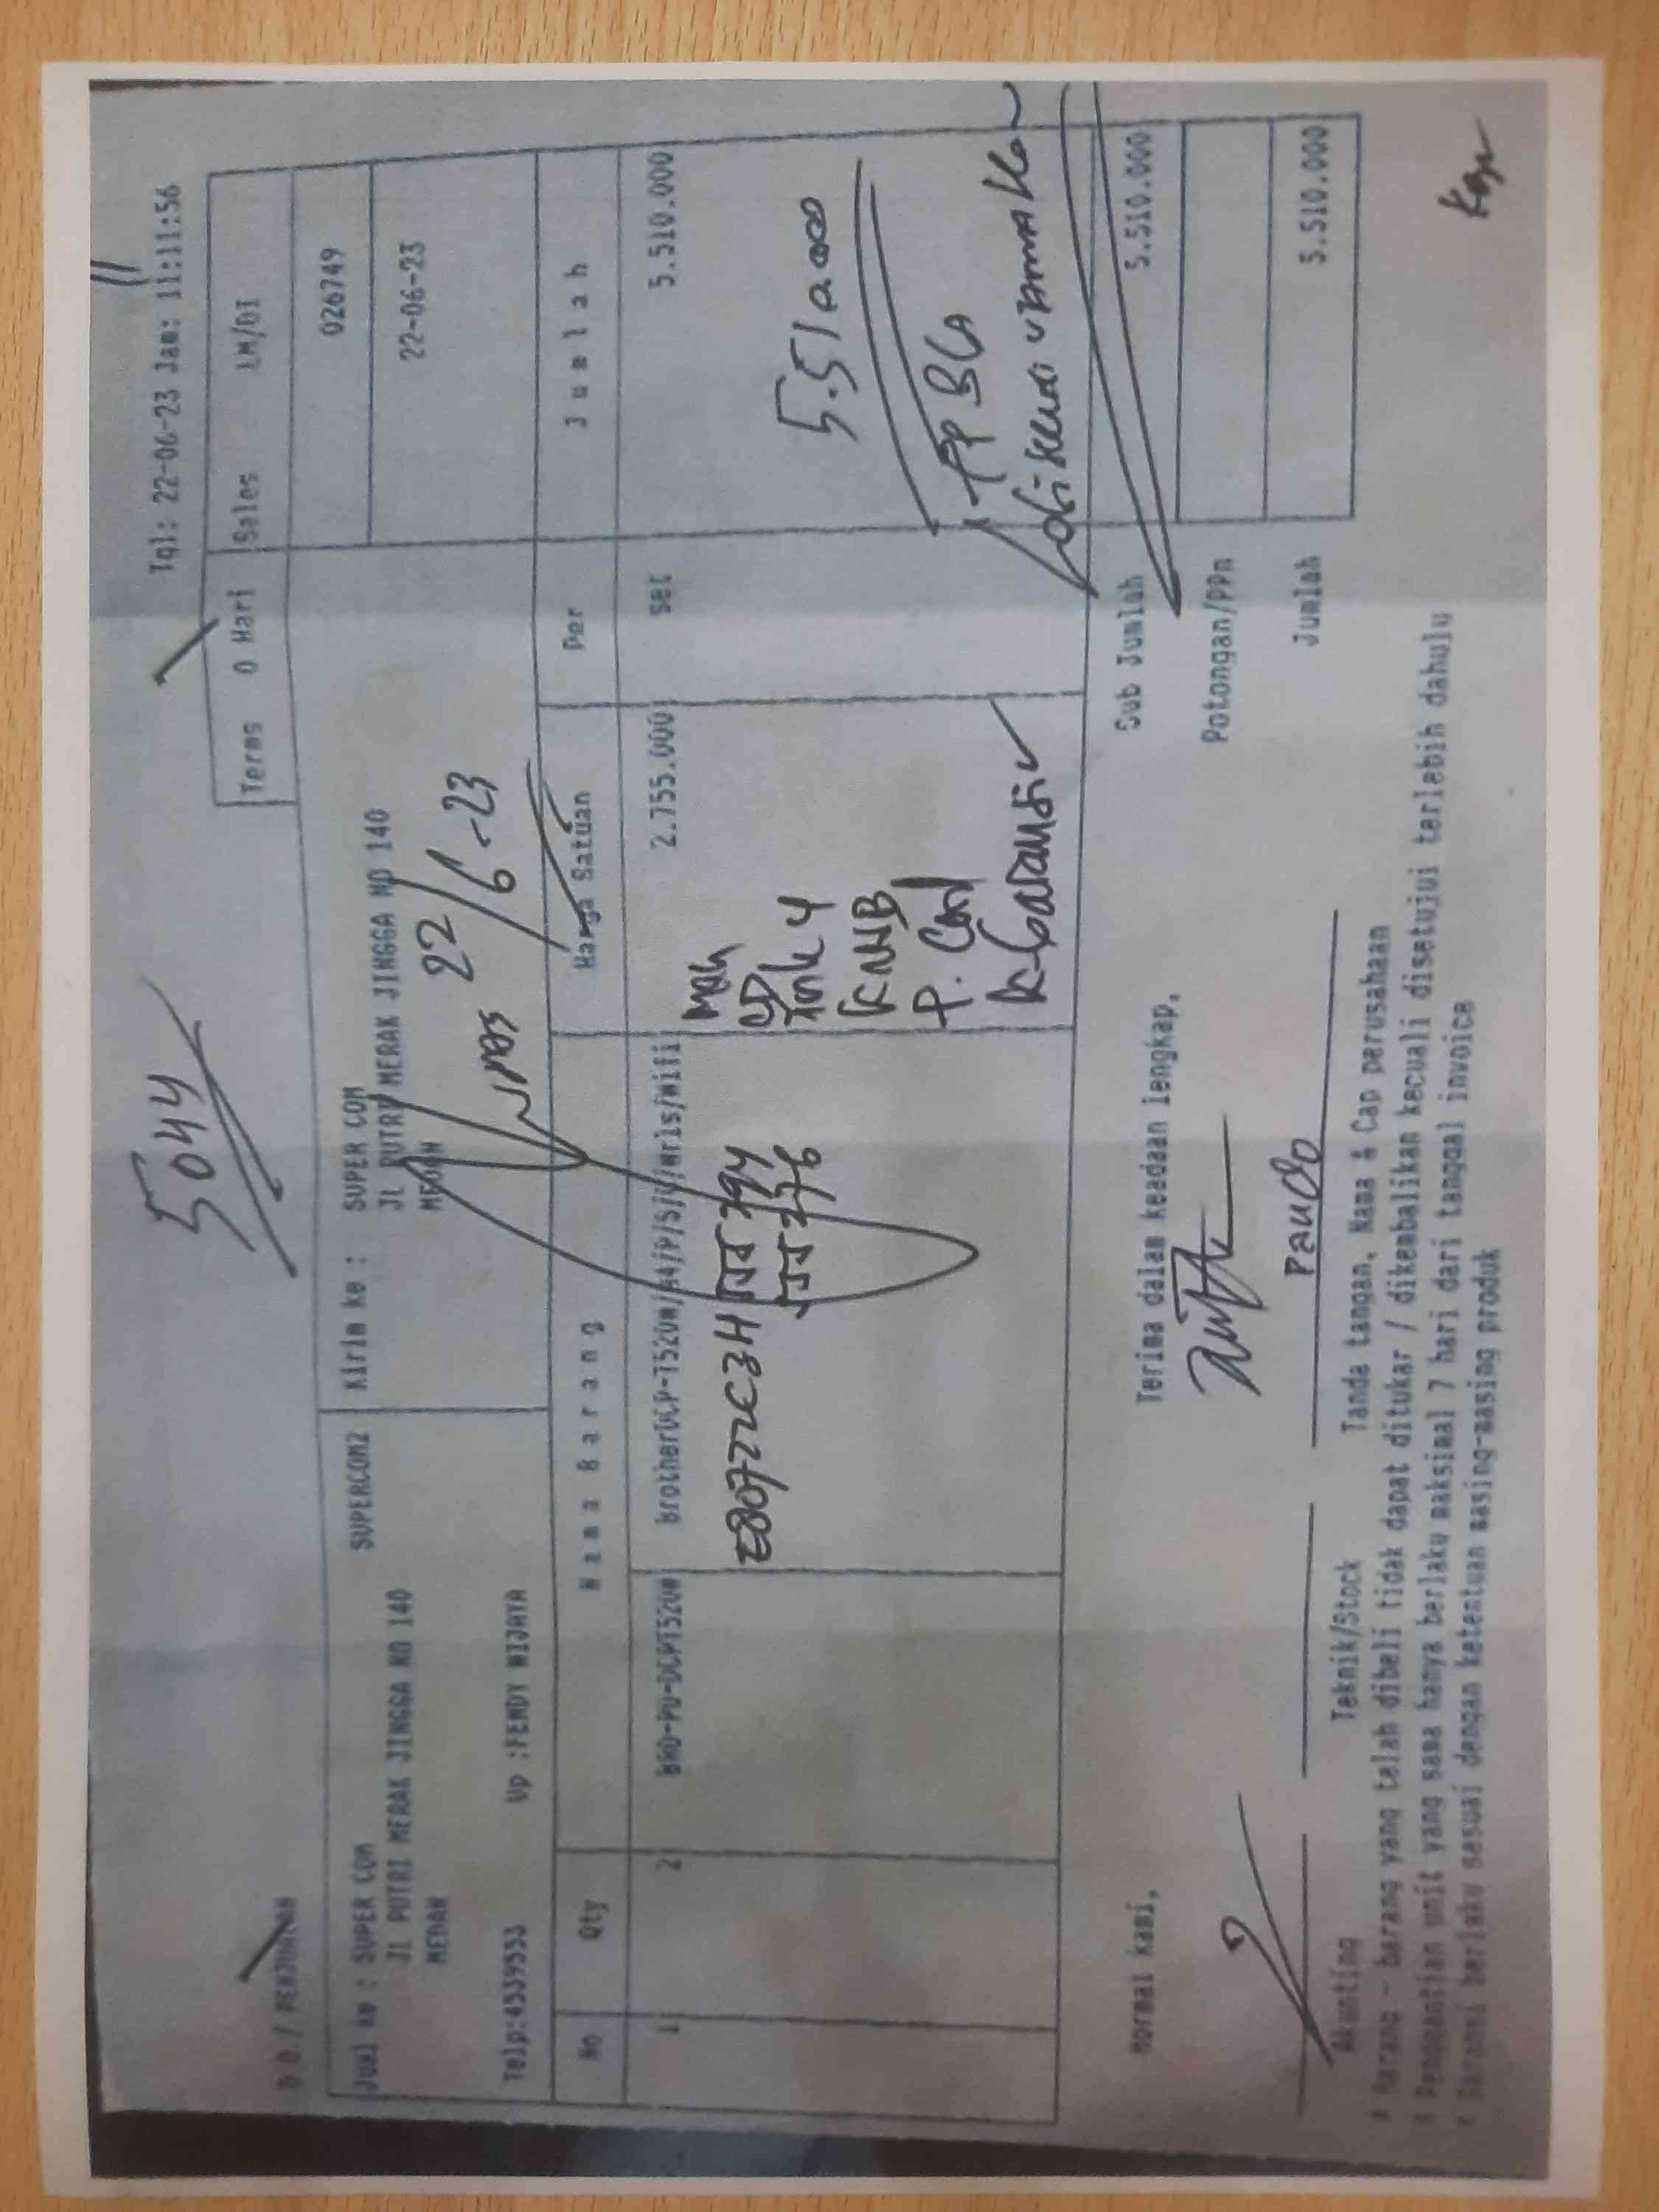 5044
Tgl: 22-06-23 Jam: 11:11:56
D O / PENJUALAN
Terms 0 Hari Sales LM/DI
026749
22-06-23
Jual ke : SUPER COM SUPERCOM2
JL PUTRI MERAK JINGGA NO 140
MEDAN
Telp:4539533 Up :FENDY WIJAYA
Kirim ke : SUPER COM
JL PUTRI MERAK JINGGA NO 140
MEDAN
22/6-23
No Qty Nama Barang Harga Satuan Per Jumlah
1 2 BRO-PU-DCPT520W BrotherDCP-T520W/A4/P/S/C/Wrls/Wifi 2.755.000 Set 5.510.000
E80722C3H
794
276
CD
Tink 4
P. Card
K-Garansi
5.510.000
Sub Jumlah 5.510.000
Potongan/PPn
Jumlah 5.510.000
Hormat kami,
Terima dalam keadaan lengkap,
Pando
Akunting Teknik/Stock Tanda tangan, Nama & Cap perusahaan
* Barang - barang yang telah dibeli tidak dapat ditukar / dikembalikan kecuali disetujui terlebih dahulu
* Penggantian unit yang sama hanya berlaku maksimal 7 hari dari tanggal invoice
* Garansi berlaku sesuai dengan ketentuan masing-masing produk